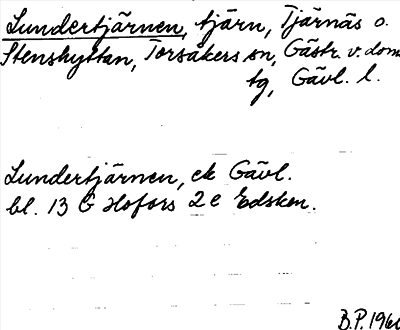 Lundertjärnen, tjärn, Tjärnäs o.
Stenshyttan, Torsåkers sn, Gästr. v. doms
tg, Gävl. l.
Lundertjärnen, ek Gävl.
bl. 13 G Hofors 2 e Edsken.
B.P. 196